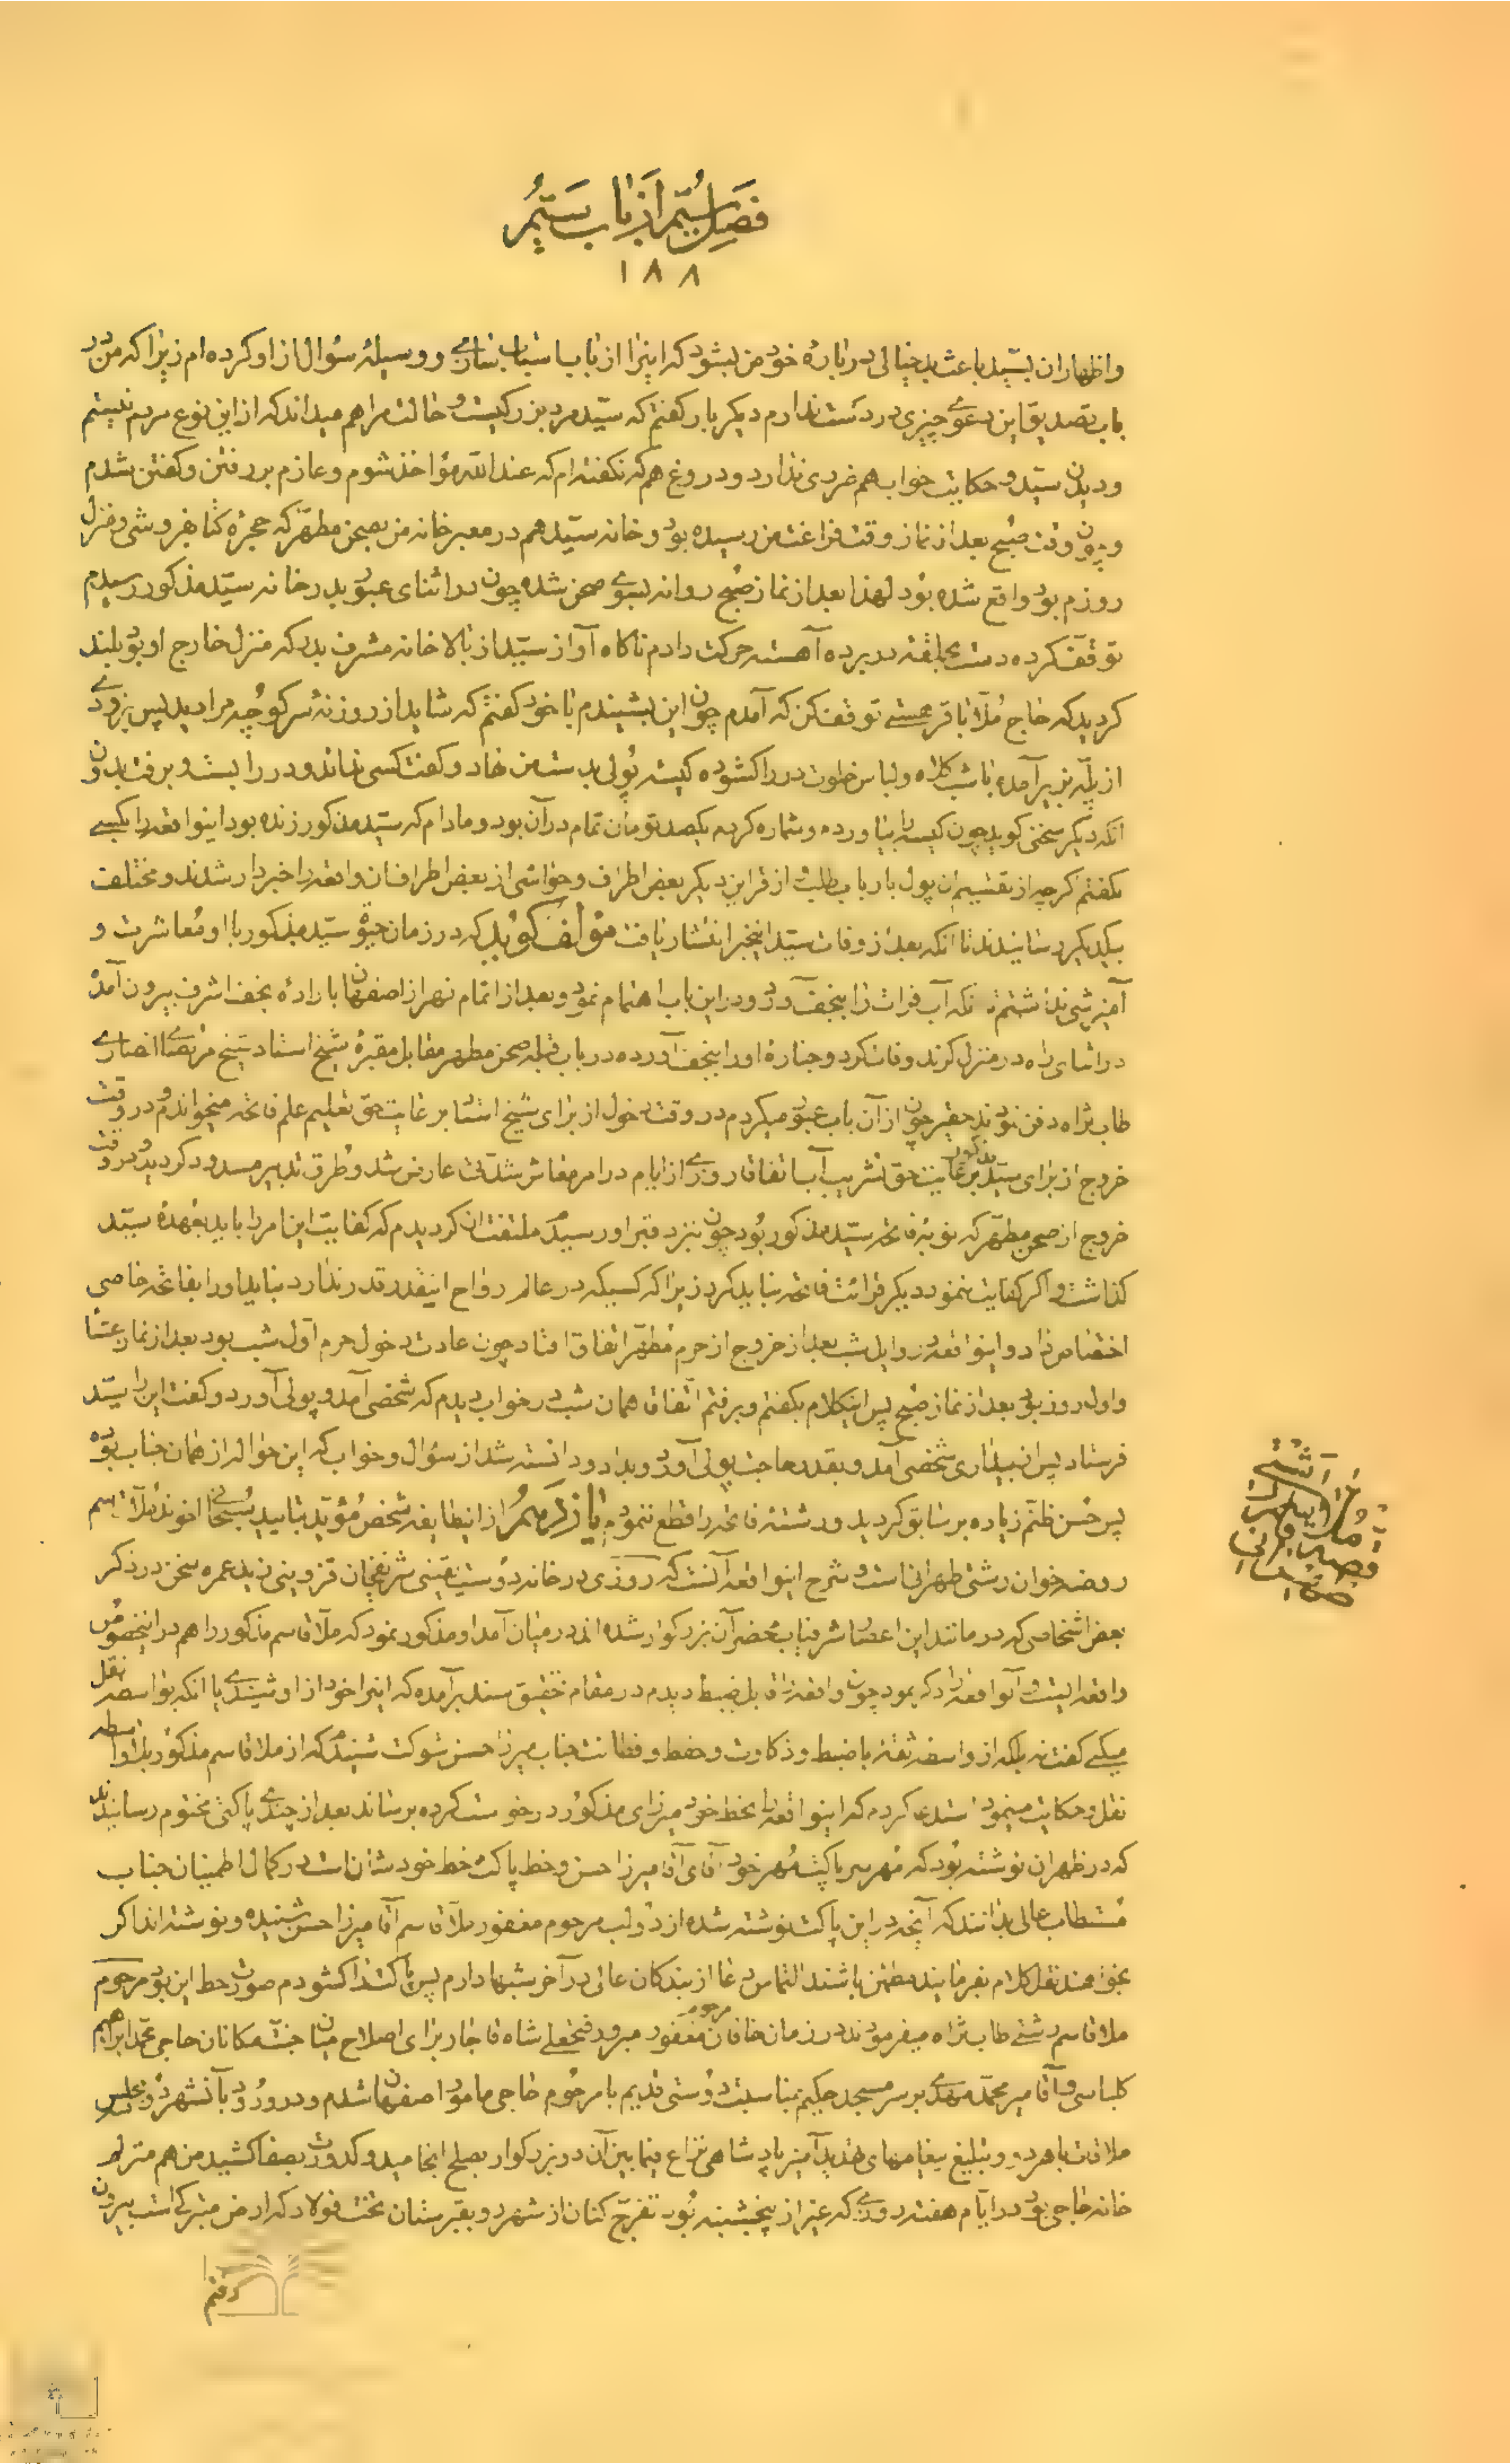 فصل سیم از باب سیم
۱۸۸
و اظهار آن بسید باعث بد خیالی درباره خود من بشود که اینرا از باب و وسیله سؤال از او کرده‌ام زیرا که من در
باب تصدیق این دعوی چیزی در دست ندارم دیگر بار گفتم که سید مرد بزرگیست و حالت مرا هم میداند که از این نوع مردم نیستم
و دیدن سید و حکایت خواب هم ضرری ندارد و دروغ هم که نگفته‌ام که عند الله مؤاخذ شوم و عازم بر رفتن و گفتن شدم
و چون وقت صبح بعد از نماز وقت فراغت من رسیده بود و خانه سید هم در معبر خانه من بصحن مطهر که حجره کتابفروشی و منزل
روزم بود واقع شده بود لهذا بعد از نماز صبح روانه بسوی صحن شده چون در اثنای عبور بدر خانه سید مذکور رسیدم
توقف کرده دست بحلقه در برده آهسته حرکت دادم ناگاه آواز سید از بالاخانه مشرف بدر که منزل خارج او بود بلند
گردید که حاج ملا باقر هستی توقف کن که آمدم چون این بشنیدم با خود گفتم که شاید از روزنه سر کوچه مرا دید پس بزودی
از پله بزیر آمده با شب کلاه و لباس خلوت در را گشوده کیسه پولی بدست من نهاد و گفت کسی نداند و در را بست و برفت بدون
آنکه دیگر سخنی گوید چون کیسه را بیاورده و شماره کردم یکصد تومان تمام در آن بود و مادام که سید مذکور زنده بود اینواقعه را بکسی
نگفتم گرچه از تقسیم آن پول بارباب طلب و از قراین دیگر بعض اطراف و حواشی از بعض اطراف آن واقعه را خبردار شدند و مختلف
بیکدیگر رسانیدند تا آنکه بعد از وفات سید اینخبر انتشار یافت مؤلف گوید که در زمان حیوة سید مذکور با او معاشرت و
آمیزشی نداشتم آنکه آب فرات را بنجف آورد و در این باب اهتمام نمود و بعد از اتمام نهر از اصفهان باراده نجف اشرف بیرون آمده
در اثنای راه در منزل کرند وفات کرد و جنازه او را بنجف آورده در باب قبله صحن مطهر مقابل مقبره شیخ استاد شیخ مرتضی انصاری
طاب ثراه دفن نمودند حقیر چون از آن باب عبور میکردم در وقت دخول از برای شیخ استاد بر عایت حق تعلیم علم فاتحه میخواندم و در وقت
خروج از برای سید مذکور برعایت حق تشریب آب اتفاقا روزی از ایام در امر معاش شدتی عارض شد و طرق تدبیر مسدود گردید در وقت
خروج از صحن مطهر که نوبه فاتحه سید مذکور بود چون بنزد قبر او رسیدم ملتفت آن گردیدم که کفایت این امر را باید بعهده سید
گذاشت و اگر کفایت ننمود دیگر قرائت فاتحه نباید کرد زیرا که کسیکه در عالم ارواح اینقدر قدر ندارد نباید او را بفاتحه خاصی
اختصاص داد و اینواقعه در اوایل شب بعد از خروج از حرم مطهر اتفاق افتاد چون عادت دخول حرم اول شب بود بعد از نماز عشا
و اول روز بود بعد از نماز صبح پس اینکلام بگفتم و برفتم اتفاقا همان شب در خواب دیدم که شخصی آمد و پولی آورد و گفت این را سید
فرستاد پس از بیداری شخصی آمد و بقدر حاجت پولی آورد و بداد و دانسته شد از سؤال و خواب که این حواله از همان جناب بوده
پس حسن ظنم زیاده بر سابق گردید و رشته فاتحه را قطع ننمودم یازدهم از اینطایفه شخص مؤید بتایید سبحانی آخوند ملا قاسم
روضه خوان رشتی طهرانی است و شرح اینواقعه آنست که روزی در خانه دوست یقینی شریف خان قزوینی زید عمره سخن در ذکر
بعض اشخاصی که در مانند این اعصار شرفیاب محضر آن بزرگوار شده‌اند در میان آمد او مذکور نمود که ملا قاسم مذکور را هم در اینخصوص
واقعه ایست و آنواقعه را ذکر نمود چون واقعه را قابل ضبط دیدم در مقام تحقیق سند برآمده که اینرا خود از او شنیدی یا آنکه بواسطه نقل
میکنی گفت نه بلکه از واسطه ثقه با ضبط و ذکاوت و حفظ و فطانت جناب میرزا حسن شوکت شنیدم که از ملا قاسم مذکور بلاواسطه
نقل و حکایت مینمود استدعا کردم که اینواقعه را بخط خود میرزای مذکور درخواست کرده برساند بعد از چندی پاکتی مختوم رسانیدند
که در ظهر آن نوشته بود که مهر سر پاکت مهر خود آقای آقا میرزا حسن و خط پاکت خط خودشان است در کمال اطمینان جناب
مستطاب عالی بدانند که آنچه در این پاکت نوشته شده از دو لب مرحوم مغفور ملا قاسم آقا میرزا حسن شنیده و نوشته‌اند اگر
بخواهند نقل کلام بفرمایند مطمئن باشند التماس دعا از بندگان عالی در آخر شبها دارم پس پاکت را گشودم صورت خط این بود مرحوم
ملا قاسم رشتی طاب ثراه میفرمودند در زمان خاقان مغفور مرحوم مبرور فتحعلی شاه قاجار برای اصلاح میان جنت مکانان حاجی محمد ابراهیم
کلباسی و آقا میر محمد مهدی بر سر مسجد حکیم بمناسبت دوستی قدیم با مرحوم حاجی مامور اصفهان شدم و در ورود بآنشهر و مجلس
ملاقات با هر دو و تبلیغ پیغامهای تهدید آمیز پادشاهی نزاع فیمابین آن دو بزرگوار بصلح انجامید و کدورت بصفا کشید من هم منزلم
خانه حاجی بود در ایام هفته روزی که غیر از پنجشنبه بود تفرج کنان از شهر و بقبرستان تخت فولاد که ارض متبرک است بیرون
رفتم